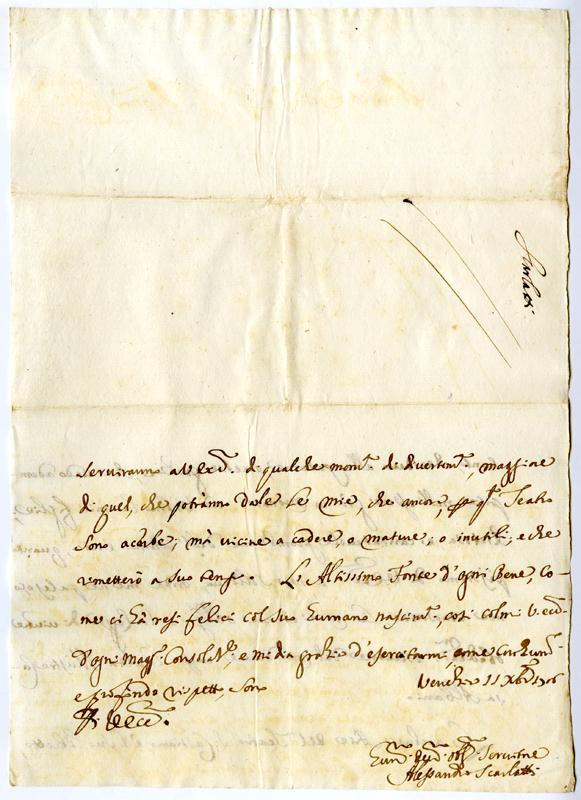 Scarlatti
serviranno a V. Ecc. di qualche mom.to di divertim.to, maggiore
di quel, che potranno darle le mie, che ancora, p q.to Teatro
sono acerbe; mà vicine a cadere, o mature; o inutili; e che
rimetterò a suo tempo. L'Altissimo Fonte d'ogni Bene, co-
me ci hà resi felici col suo humano nascim.to, così colmi V. Ecc.
d'ogni magg.r Consolat.ne; e mi dia grazia d'esercitarmi, come con hum.
e profondo rispetto, sono
Venezia 11 Xbre 1706
Di V. Ecc.
Hum.mo Dev.mo obb.mo Servitore
Alessandro Scarlatti